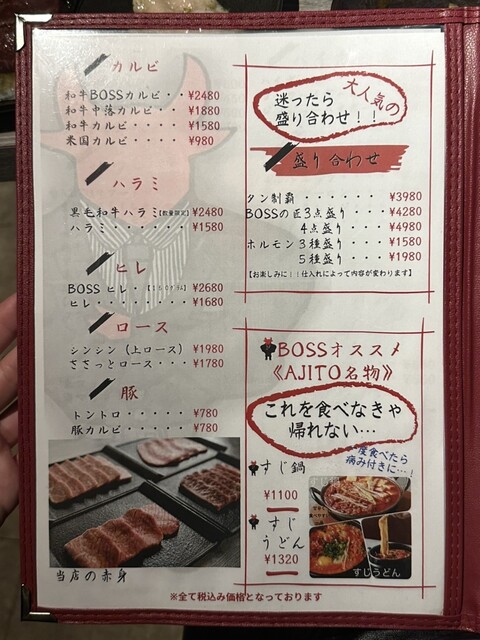 カルビ
和牛BOSSカルビ・・¥2480
和牛中落カルビ・・¥1880
和牛カルビ・・・・¥1580
米国カルビ・・・・¥980
ハラミ
黒毛和牛ハラミ【数量限定】¥2480
ハラミ・・・・・・¥1580
ヒレ
BOSS ヒレ・ ¥2680
ヒレ・・・・・・・¥1680
ロース
シンシン(上ロース) ¥1980
ささっとロース・・¥1780
豚
トントロ・・・・・¥780
豚カルビ・・・・・¥780
当店の赤身
大人気の
迷ったら
盛り合わせ!!
盛り合わせ
タン制覇・・・・・・¥3980
BOSSの匠3点盛り・・¥4280
4点盛り・・¥4980
ホルモン3種盛り・・¥1580
5種盛り・・¥1980
【お楽しみに!!仕入れによって内容が変わります】
BOSSオススメ
《AJITO名物》
これを食べなきゃ
帰れない…
度食べたら
病み付きに…!
すじ鍋
¥1100
すじ
うどん
¥1320
すじうどん
※全て税込み価格となっております